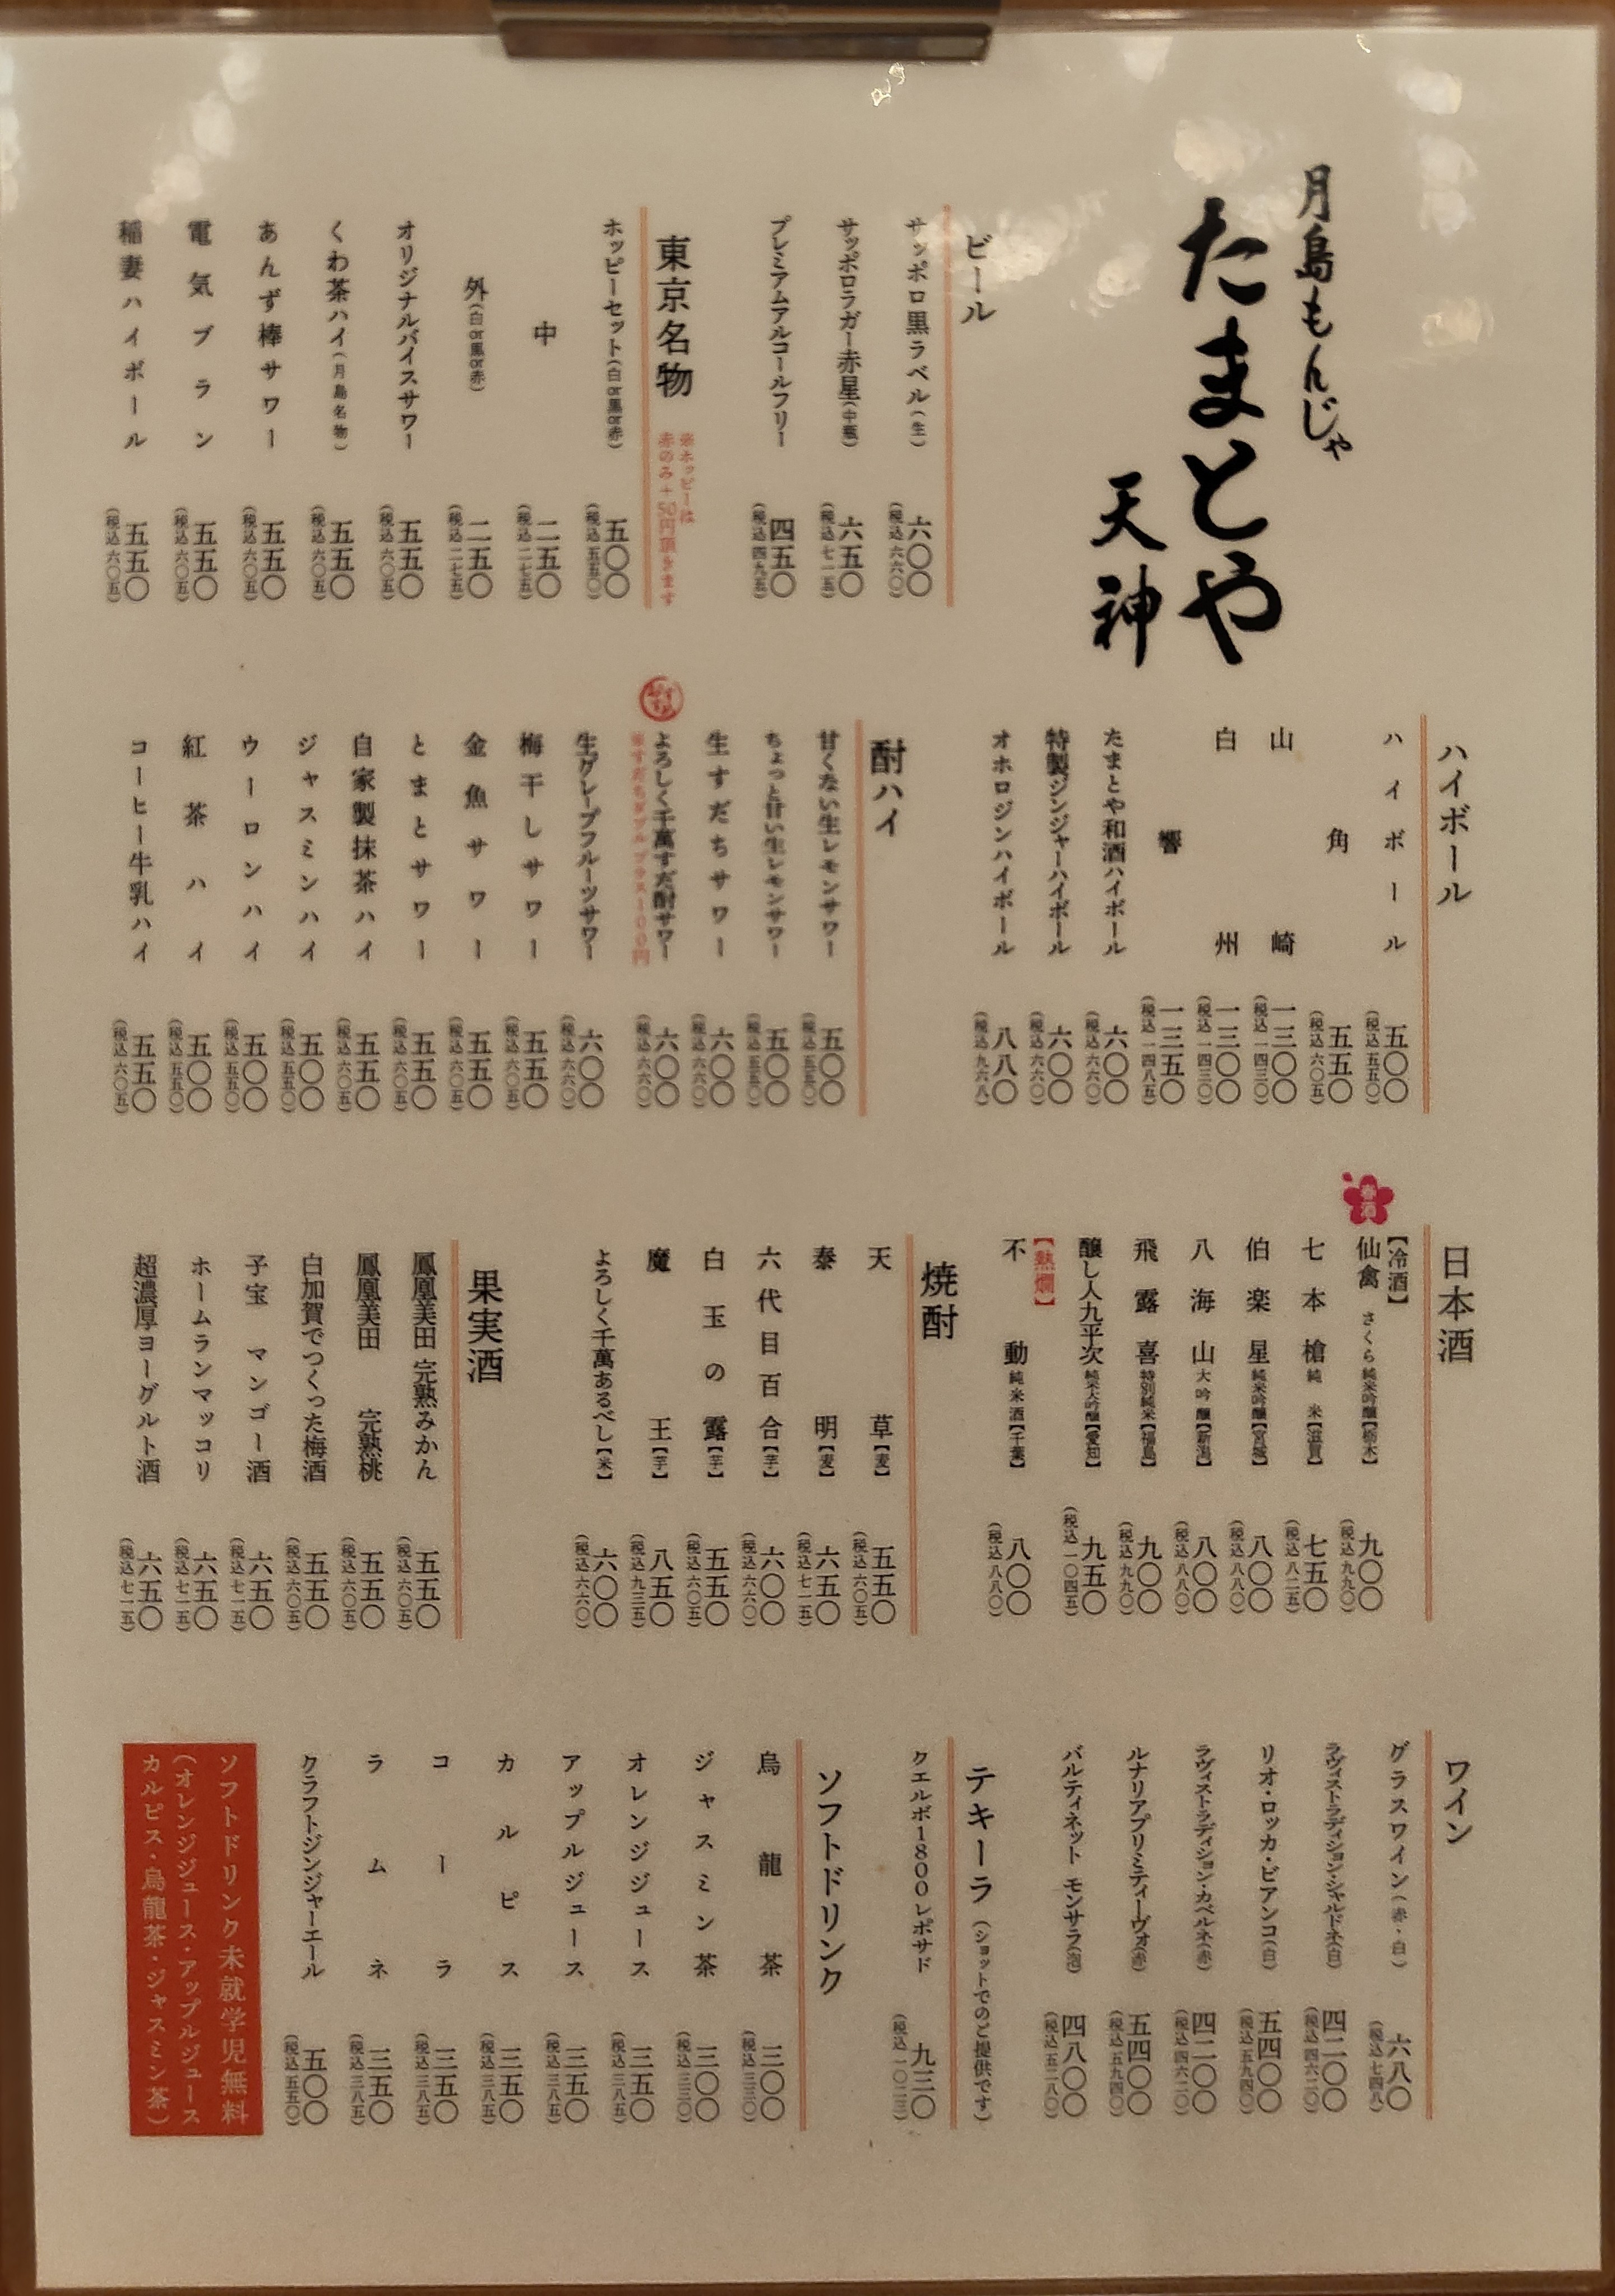 月島もんじゃ
たまとや
天神
ビール
サッポロ黒ラベル(生) 六〇〇 (税込 六六〇)
サッポロラガー赤星(中瓶) 六五〇 (税込 七一五)
プレミアムアルコールフリー 四五〇 (税込 四九五)
東京名物
※ホッピーは
赤のみ+50円頂きます
ホッピーセット(白or黒or赤) 五〇〇 (税込 五五〇)
中 二五〇 (税込 二七五)
外(白or黒or赤) 二五〇 (税込 二七五)
オリジナルバイスサワー 五五〇 (税込 六〇五)
くわ茶ハイ(月島名物) 五五〇 (税込 六〇五)
あんず棒サワー 五五〇 (税込 六〇五)
電気ブラン 五五〇 (税込 六〇五)
稲妻ハイボール 五五〇 (税込 六〇五)
ハイボール
ハイボール 五〇〇 (税込 五五〇)
角 五五〇 (税込 六〇五)
山崎 一三〇〇 (税込 一四三〇)
白州 一三〇〇 (税込 一四三〇)
響 一三五〇 (税込 一四八五)
たまとや和酒ハイボール 六〇〇 (税込 六六〇)
特製ジンジャーハイボール 六〇〇 (税込 六六〇)
オホロジンハイボール 八八〇 (税込 九六八)
酎ハイ
甘くない生レモンサワー 五〇〇 (税込 五五〇)
ちょっと甘い生レモンサワー 五〇〇 (税込 五五〇)
生すだちサワー 六〇〇 (税込 六六〇)
よろしく千萬すだ酎サワー 六〇〇 (税込 六六〇)
生グレープフルーツサワー 六〇〇 (税込 六六〇)
梅干しサワー 五五〇 (税込 六〇五)
金魚サワー 五五〇 (税込 六〇五)
とまとサワー 五五〇 (税込 六〇五)
自家製抹茶ハイ 五五〇 (税込 六〇五)
ジャスミンハイ 五〇〇 (税込 五五〇)
ウーロンハイ 五〇〇 (税込 五五〇)
紅茶ハイ 五〇〇 (税込 五五〇)
コーヒー牛乳ハイ 五五〇 (税込 六〇五)
日本酒
【冷酒】
春酒
仙禽 さくら 純米吟醸【栃木】 九〇〇 (税込 九九〇)
七本槍 純米【滋賀】 七五〇 (税込 八二五)
伯楽星 純米吟醸【宮城】 八〇〇 (税込 八八〇)
八海山 大吟醸【新潟】 八〇〇 (税込 八八〇)
飛露喜 特別純米【福島】 九〇〇 (税込 九九〇)
醸し人九平次 純米大吟醸【愛知】 九五〇 (税込 一〇四五)
【熱燗】
不動 純米酒【千葉】 八〇〇 (税込 八八〇)
焼酎
天草【麦】 五五〇 (税込 六〇五)
泰明【麦】 六五〇 (税込 七一五)
六代目百合【芋】 六〇〇 (税込 六六〇)
白玉の露【芋】 五五〇 (税込 六〇五)
魔王【芋】 八五〇 (税込 九三五)
よろしく千萬あるべし【米】 六〇〇 (税込 六六〇)
果実酒
鳳凰美田 完熟みかん 五五〇 (税込 六〇五)
鳳凰美田 完熟桃 五五〇 (税込 六〇五)
白加賀でつくった梅酒 五五〇 (税込 六〇五)
子宝 マンゴー酒 六五〇 (税込 七一五)
ホームランマッコリ 六五〇 (税込 七一五)
超濃厚ヨーグルト酒 六五〇 (税込 七一五)
ワイン
グラスワイン(赤・白) 六八〇 (税込 七四八)
ラヴィストラディション・シャルドネ(白) 四二〇〇 (税込 四六二〇)
リオ・ロッカ・ビアンコ(白) 五四〇〇 (税込 五九四〇)
ラヴィストラディション・カベルネ(赤) 四二〇〇 (税込 四六二〇)
ルナリアプリミティーヴォ(赤) 五四〇〇 (税込 五九四〇)
バルティネット モンサラ(泡) 四八〇〇 (税込 五二八〇)
テキーラ(ショットでのご提供です)
クエルボ1800レポサド 九三〇 (税込 一〇二三)
ソフトドリンク
烏龍茶 三〇〇 (税込 三三〇)
ジャスミン茶 三〇〇 (税込 三三〇)
オレンジジュース 三五〇 (税込 三八五)
アップルジュース 三五〇 (税込 三八五)
カルピス 三五〇 (税込 三八五)
コーラ 三五〇 (税込 三八五)
ラムネ 三五〇 (税込 三八五)
クラフトジンジャーエール 五〇〇 (税込 五五〇)
ソフトドリンク未就学児無料
(オレンジジュース・アップルジュース
カルピス・烏龍茶・ジャスミン茶)